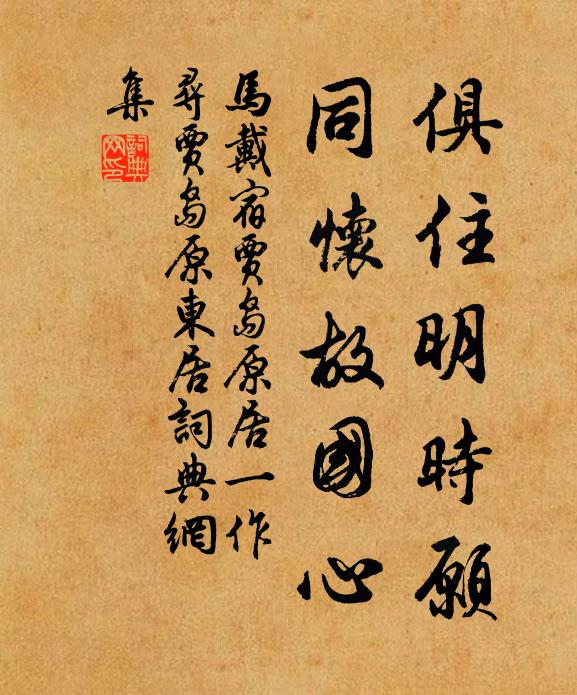 俱住明時願
同懷故國心
馬戴宿賈島原居一作
尋賈島原東居詞典網
集
詞典網印